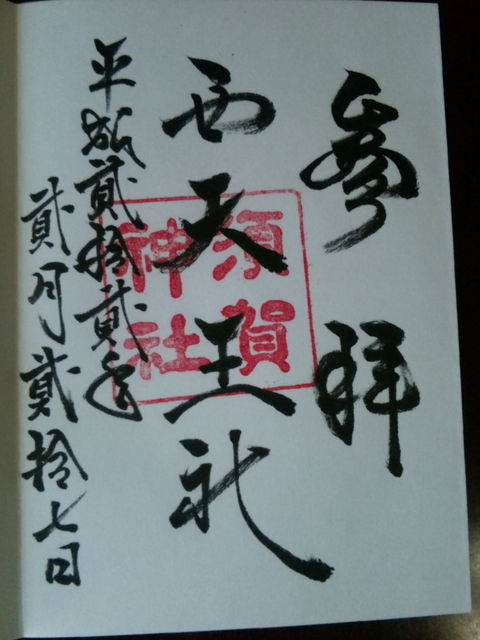 參拜
西天王社
須賀
神社
平成貳拾貳年
貳月貳拾七日